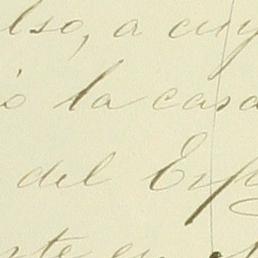 lso, a cuy
ó la casa
del Esp
rte es